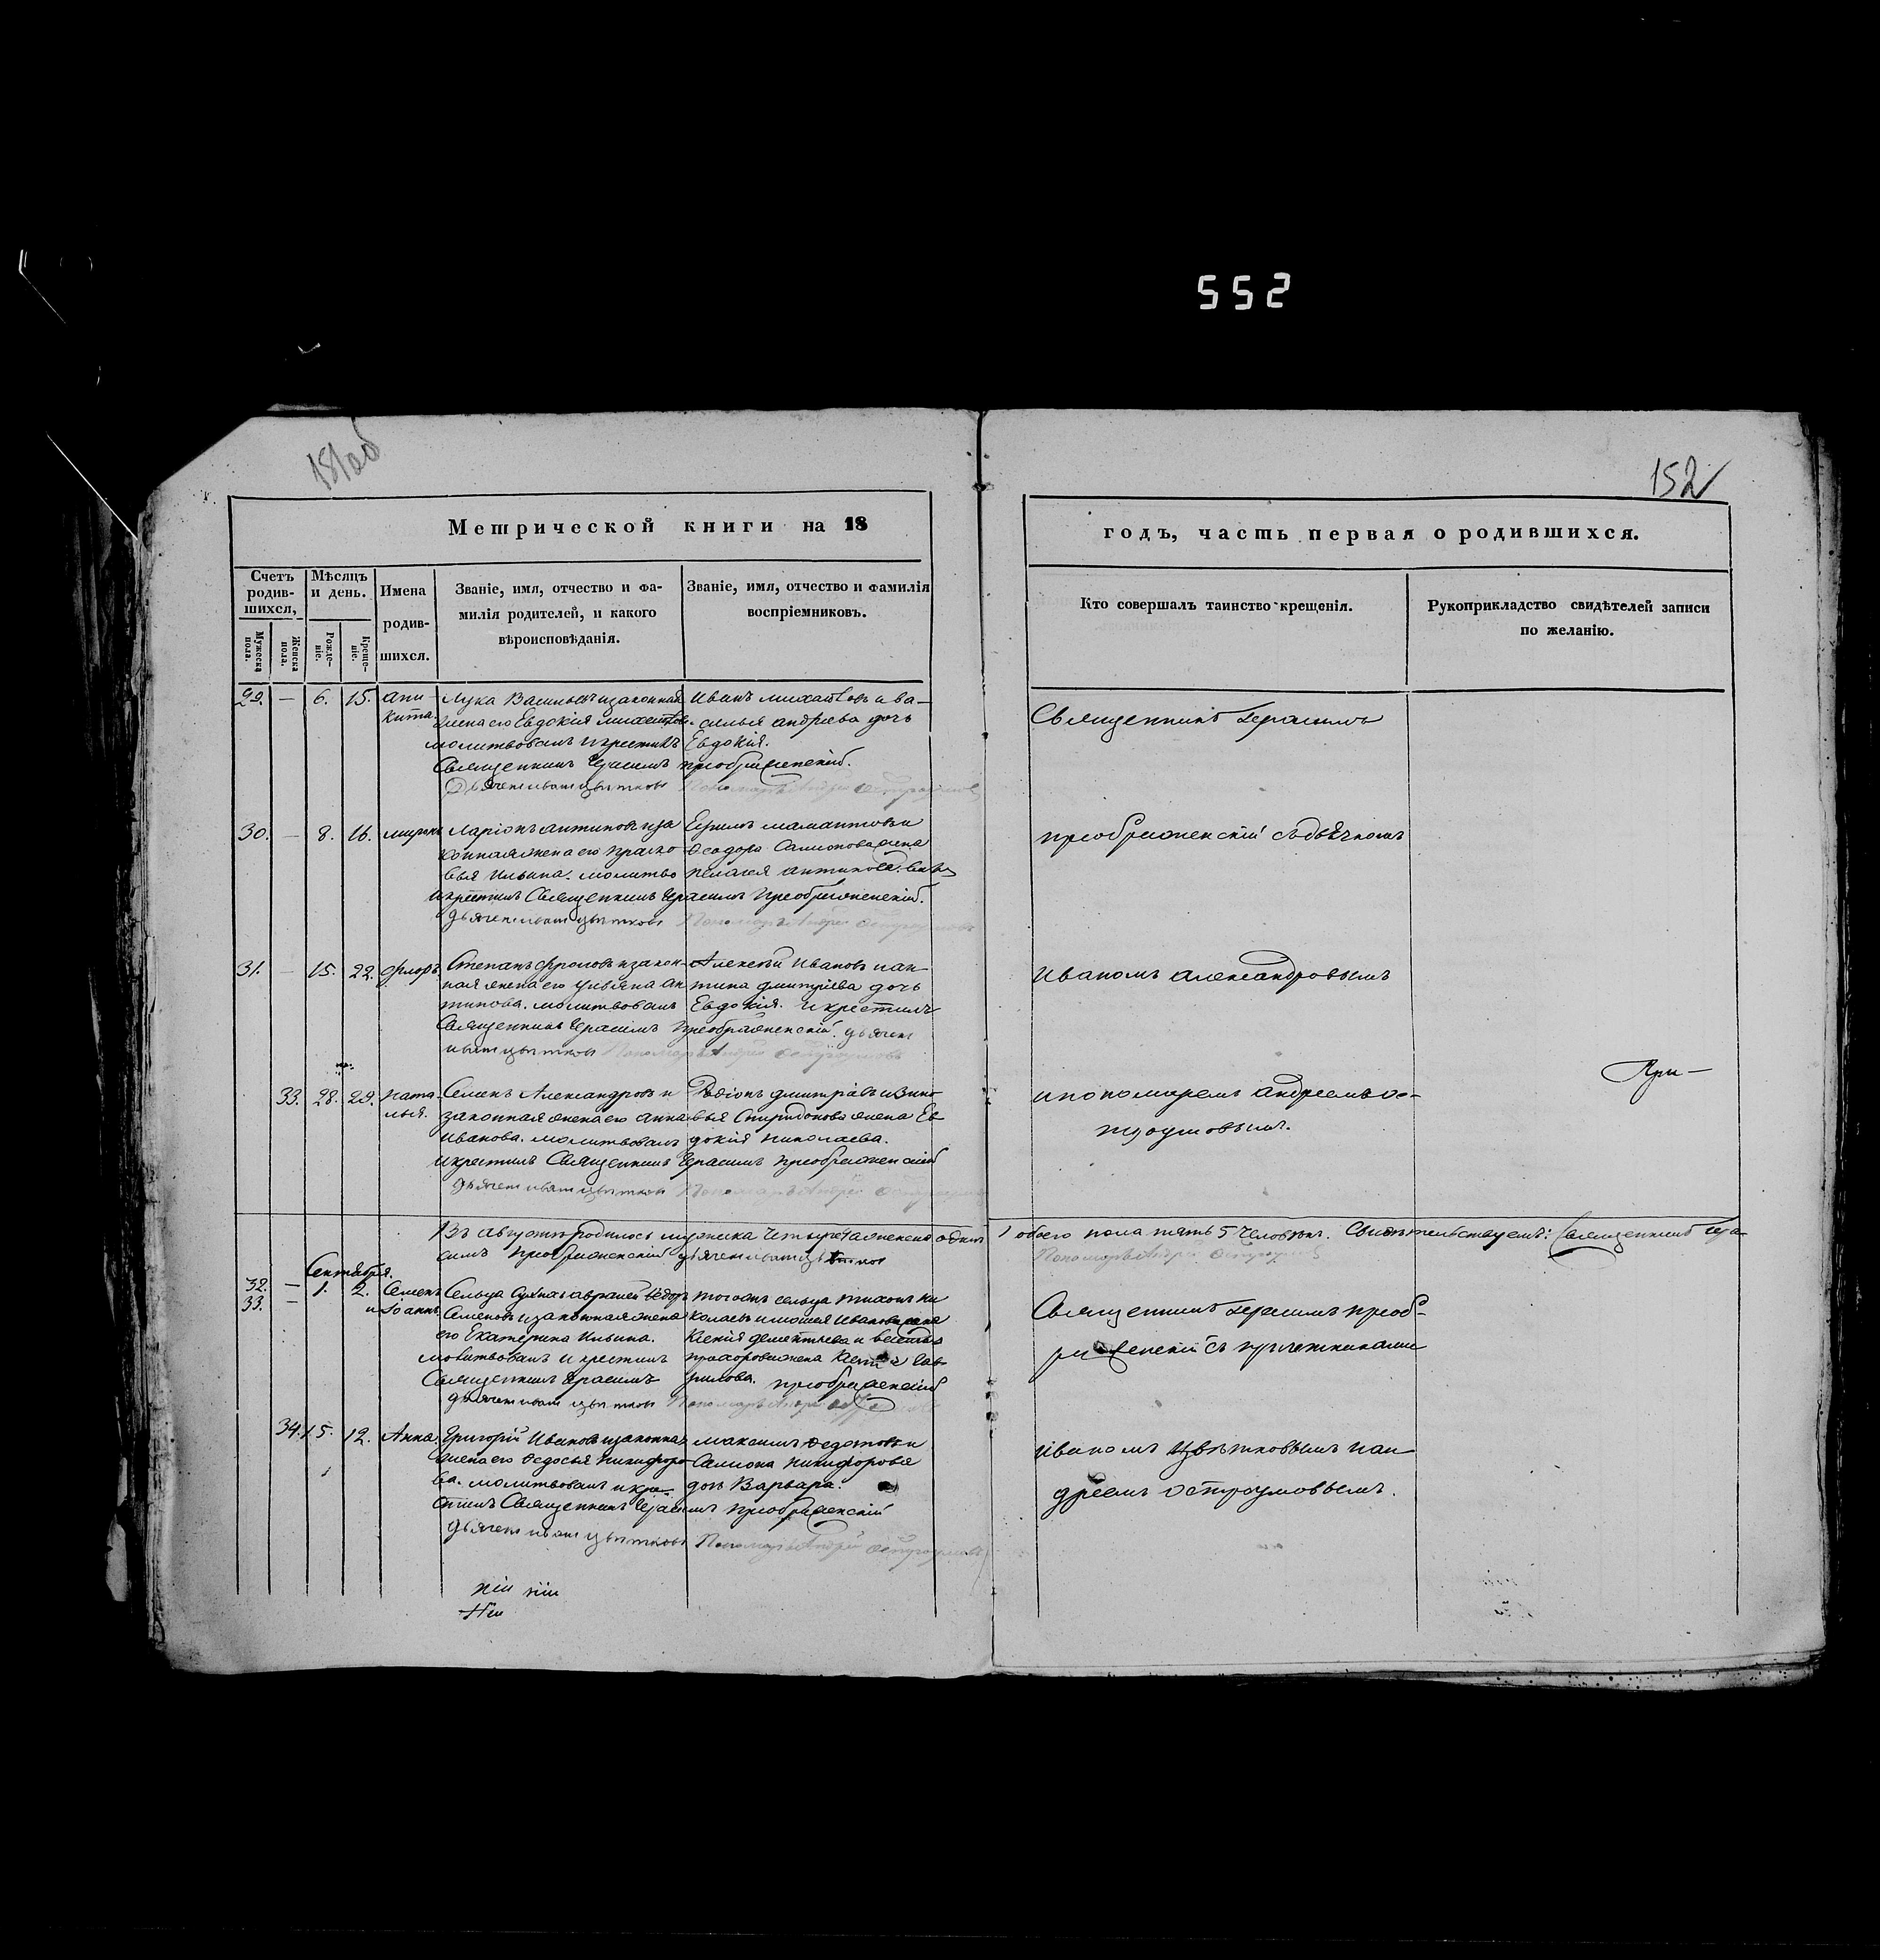 552
152
Метрической книги на 18
годъ, часть первая о родившихся.
Счетъ родив-шихся,
Мужеска пола.
Женска пола.
Мѣсяцъ и день.
Рожде-ніе.
Креще-ніе.
Имена родив-шихся.
Званіе, имя, отчество и фа-
милія родителей, и какого
вѣроисповѣданія.
Званіе, имя, отчество и фамилія
воспріемниковъ.
Кто совершалъ таинство крещенія.
Рукоприкладство свидѣтелей записи
по желанію.
29. — 6. 15. Ани-
кита.
Лука Васильевъ и законная
жена его Евдокія
молитвовалъ и крестилъ
Священникъ Герасимъ Преображенскій.
Дьячек Иван Цветковъ Пономарь Андрей Остроумовъ
Иванъ Михайловъ и Ва-
силья Андреева дочь
Евдокія.
Священникъ Герасимъ
30. — 8. 16. Миронъ
Ларіонъ Антиповъ и за
конная жена его Праско
вья Ильина. молитво
и крестилъ Священникъ Герасимъ Преображенскій.
дьячек Иван Цветковъ Пономарь Андрей Остроумовъ
Ефимъ Мамантовъ и
Ѳеодора жена
Пелагея Антипова.
Преображенскій съ дьячкомъ
31. — 15. 22. Флоръ.
Степанъ Фроловъ и закон-
ная жена его Ульяна Ан
типова. молитвовалъ
Священникъ Герасимъ Преображенскій. дьячек
Иван Цветковъ Пономарь Андрей Остроумовъ
Алексѣй Ивановъ и Ан-
типа Дмитріева дочь
Евдокія. и крестилъ
Иваномъ Александровымъ
33. 28. 29. Ната-
лья.
Семенъ Александровъ и
законная жена его Анна
Иванова. молитвовалъ
и крестилъ Священникъ Герасимъ Преображенскій
дьячек Иван Цветковъ Пономарь Андрей
Родіонъ Дмитріевъ и Зино
вья Спиридонова жена Ев
докія Николаева.
и пономаремъ Андреемъ Ос-
троумовымъ.
При—
Въ августѣ родилось мужеска четыре 4 а женска один 1 обоего пола пять 5 человѣкъ. Свидѣтельствуемъ: Священникъ Гера-
симъ Преображенскій дьячек Иван Цветков Пономарь Андрей Остроумовъ
Сентября.
32. — 1. 2. Семенъ
33. — и Іоаннъ
Сельца Аврамей Ѳедоръ
Семеновъ и законная жена
его Екатерина Ильина.
молитвовалъ и крестилъ
Священникъ Герасимъ Преображенскій
дьячек Иван Цветковъ Пономарь Андрей
тогожъ сельца Тихонъ Ни
колаевъ и Иванова жена
Ксенія Дементьева и
Прохорова жена Гав-
рилова.
Священникъ Герасимъ Преоб-
раженскій съ причетниками
34. 15. 12. Анна.
Григорій Ивановъ и законная
жена его Ѳедосья Никифоро
ва. молитвовалъ и кре-
стилъ Священникъ Герасимъ Преображенскій
дьячек Иван Цветковъ Пономарь Андрей Остроумовъ
Максимъ Ѳедотовъ и
Самсона Никифорова
дочь Варвара.
Иваномъ Цвѣтковымъ и Ан-
дреемъ Остроумовымъ.